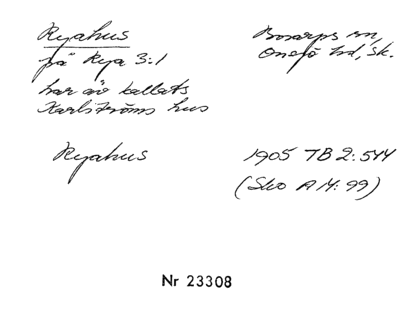 Ryahus
på Rya 3:1
har äv kallats
Karlströms hus
Bosarps sn,
Onsjö hd, Sk.
Ryahus
1905 TB 2:544
(Sko A 14:99)
Nr 23308